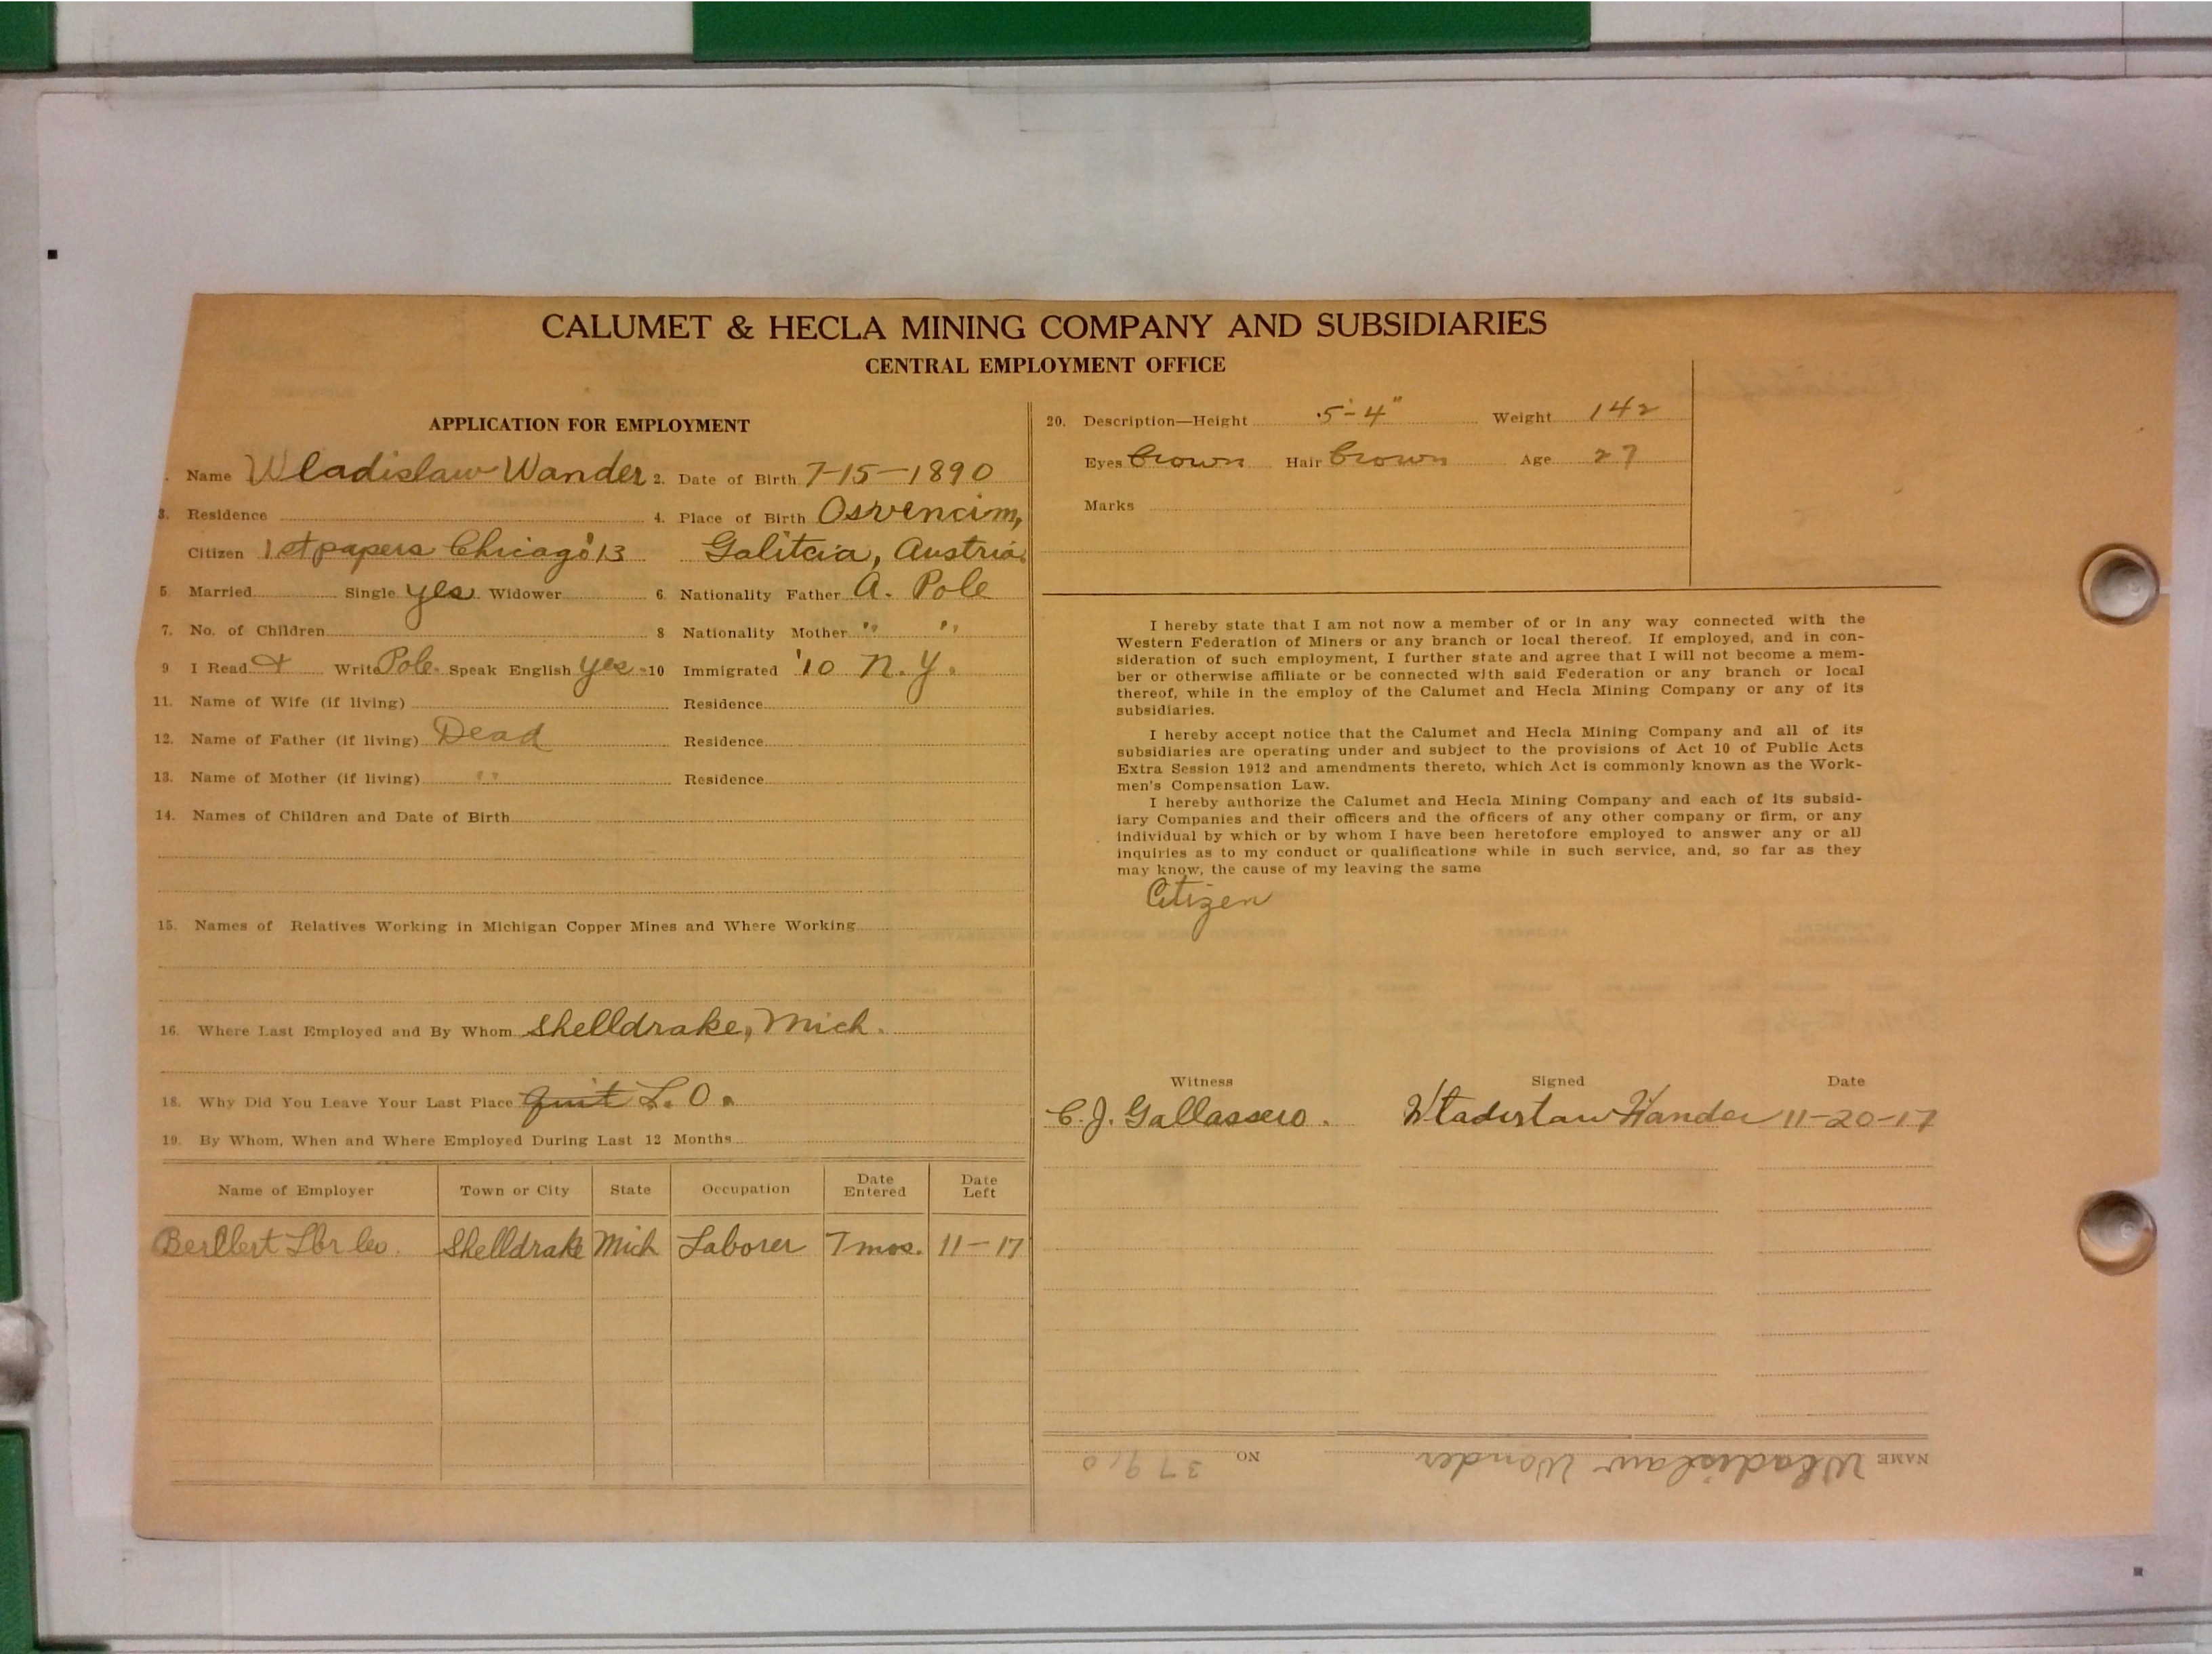 CALUMET & HECLA MINING COMPANY AND SUBSIDIARIES
CENTRAL EMPLOYMENT OFFICE
APPLICATION FOR EMPLOYMENT
Name Wladislaw Wander 2. Date of Birth 7-15-1890
3. Residence 4. Place of Birth Osvencim,
Citizen 1st papers Chicago '13 Galitcia, Austria.
5. Married Single yes Widower 6. Nationality Father A. Pole
7. No. of Children 8 Nationality Mother " "
9 I Read + Write Pole Speak English yes 10 Immigrated '10 N.Y.
11. Name of Wife (if living) Residence
12. Name of Father (if living) Dead Residence
13. Name of Mother (if living) " Residence
14. Names of Children and Date of Birth
15. Names of Relatives Working in Michigan Copper Mines and Where Working
16. Where Last Employed and By Whom Shelldrake, Mich.
18. Why Did You Leave Your Last Place quit L.O.
19. By Whom, When and Where Employed During Last 12 Months
Name of Employer Town or City State Occupation Date Entered Date Left
Lbr Co. Shelldrake Mich Laborer 7 mos. 11-17
20. Description—Height 5'-4" Weight 142
Eyes Brown Hair Brown Age 27
Marks
I hereby state that I am not now a member of or in any way connected with the
Western Federation of Miners or any branch or local thereof. If employed, and in con-
sideration of such employment, I further state and agree that I will not become a mem-
ber or otherwise affiliate or be connected with said Federation or any branch or local
thereof, while in the employ of the Calumet and Hecla Mining Company or any of its
subsidiaries.
I hereby accept notice that the Calumet and Hecla Mining Company and all of its
subsidiaries are operating under and subject to the provisions of Act 10 of Public Acts
Extra Session 1912 and amendments thereto, which Act is commonly known as the Work-
men's Compensation Law.
I hereby authorize the Calumet and Hecla Mining Company and each of its subsid-
iary Companies and their officers and the officers of any other company or firm, or any
individual by which or by whom I have been heretofore employed to answer any or all
inquiries as to my conduct or qualifications while in such service, and, so far as they
may know, the cause of my leaving the same
Citizen
Witness Signed Date
C. J. Gallassero. Wladislaw Wander 11-20-17
NAME Wladislaw Wander NO 37910